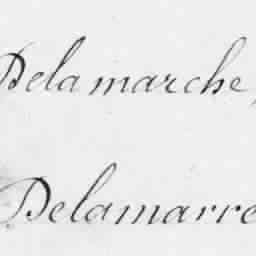 Delamarche,
Delamarre